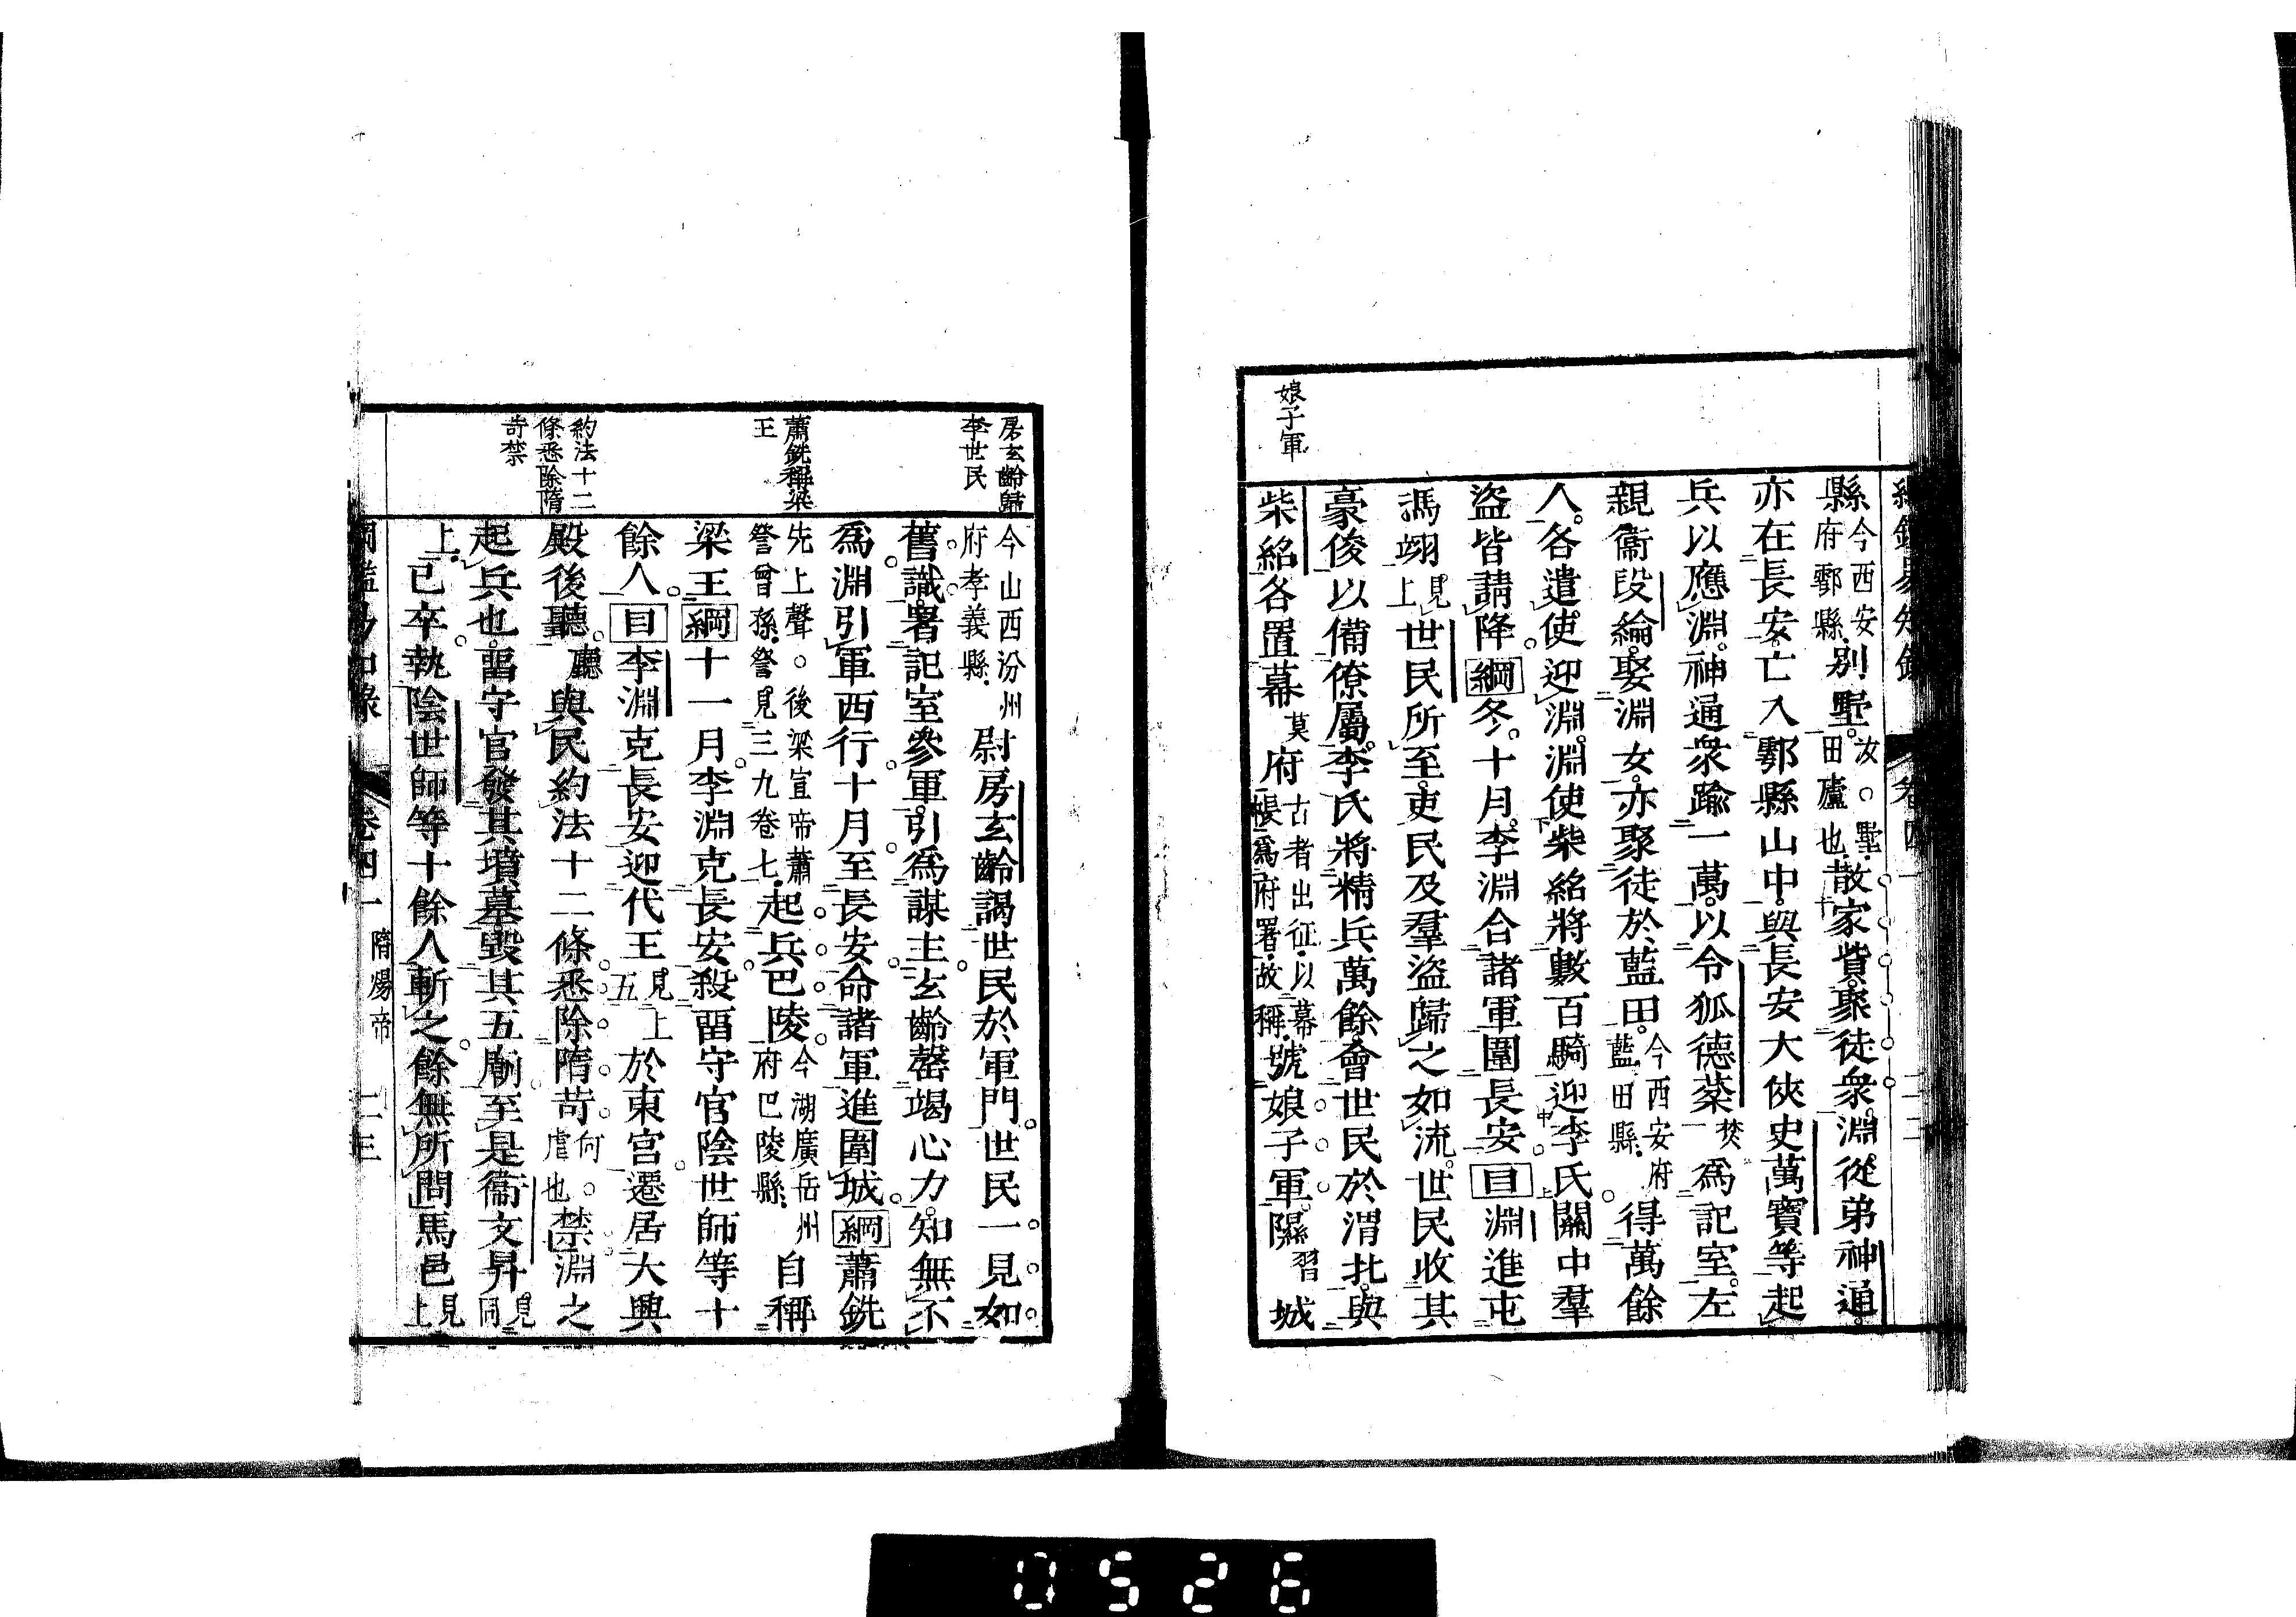 娘子軍
縣今西安府鄠縣別墅汝。墅田廬也散家貲聚徒衆淵從弟神通
亦在長安亡入鄠縣山中與長安大俠史萬寶等起
兵以應淵神通衆踰一萬以令狐德棻焚爲記室左
親衞段綸娶淵女亦聚徒於藍田今西安府藍田縣得萬餘
人各遣使迎淵淵使柴紹將數百騎迎李氏關中羣
盜皆請降綱冬十月李淵合諸軍圍長安目淵進屯
馮翊見上世民所至吏民及羣盜歸之如流世民收其
豪俊以備僚屬李氏將精兵萬餘會世民於渭北與
柴紹各置幕莫府古者出征以幕帳爲府署故稱號娘子軍隰習城
房玄齡歸李世民
蕭銑稱梁王
約法十二條悉除隋苛禁
今山西汾州府孝義縣尉房玄齡謁世民於軍門世民一見如
舊識署記室參軍引爲謀主玄齡罄竭心力知無不
爲淵引軍西行十月至長安命諸軍進圍城綱蕭銑
先上聲。後梁宣帝蕭詧曾孫詧見三九卷七起兵巴陵今湖廣岳州府巴陵縣自稱
梁王綱十一月李淵克長安殺畱守官陰世師等十
餘人目李淵克長安迎代王見上五於東宮遷居大興
殿後聽廳與民約法十二條悉除隋苛何。虐也禁淵之
起兵也畱守官發其墳墓毀其五廟至是衞文昇見同
上已卒執陰世師等十餘人斬之餘無所問馬邑見上
卷四一 隋煬帝 二三